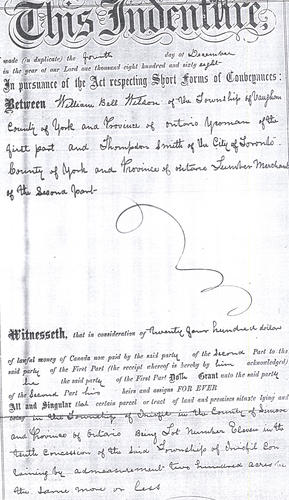 This Indenture,
made (in duplicate) the fourth day of December
in the year of our Lord one thousand eight hundred and sixty eight
In pursuance of the Act respecting Short Forms of Conveyances:
Between William Bell Wilson of the Township of Vaughan
County of York and Province of Ontario Yeoman of the
first part and Thompson Smith of the City of Toronto
County of York and Province of Ontario Lumber Merchant
of the Second part
Witnesseth, that in consideration of Twenty four hundred dollars
of lawful money of Canada now paid by the said party of the Second Part to the
said party of the First Part (the receipt whereof is hereby by him acknowledged)
he the said party of the First Part Doth Grant unto the said party
of the Second Part his heirs and assigns FOR EVER
All and Singular that certain parcel or tract of land and premises situate lying and
being in the Township of Innisfil in the County of Simcoe
and Province of Ontario Being Lot Number Eleven in the
tenth Concession of the said Township of Innisfil Con
taining by admeasurement two hundred acres be
the same more or less